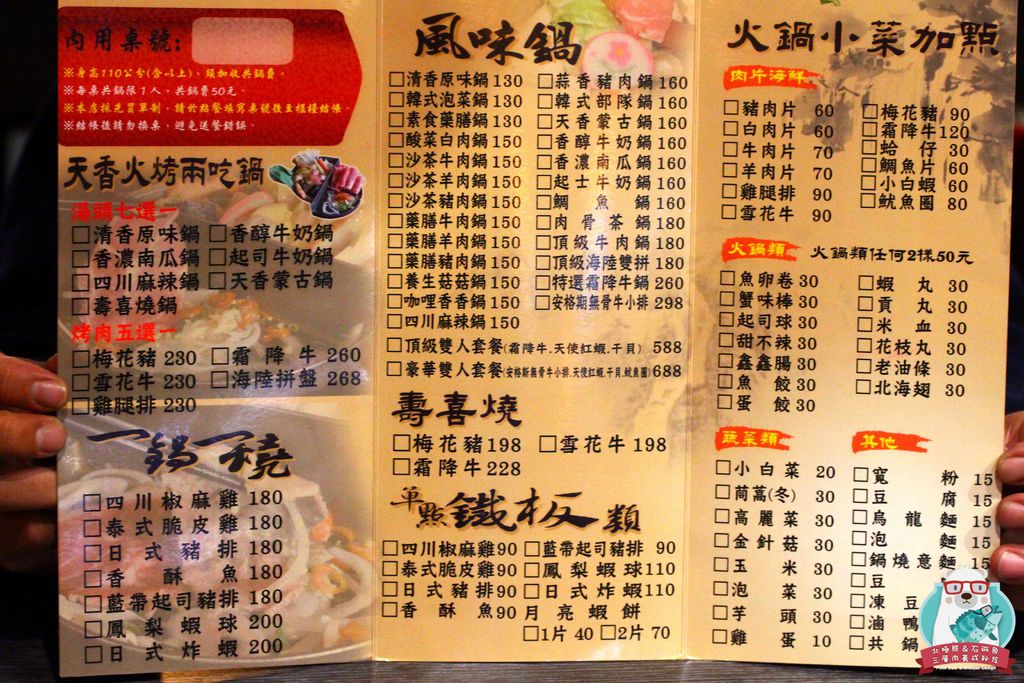 內用桌號:
※身高110公分(含以上)，須加收共鍋費。
※每桌共鍋限1人，共鍋費50元。
※本店採先買單制，請於點餐填寫桌號後至櫃檯結帳。
※結帳後請勿換桌，避免送餐錯誤。
天香火烤兩吃鍋
湯頭七選一
□清香原味鍋 □香醇牛奶鍋
□香濃南瓜鍋 □起司牛奶鍋
□四川麻辣鍋 □天香蒙古鍋
□壽喜燒鍋
烤肉五選一
□梅花豬 230 □霜降牛 260
□雪花牛 230 □海陸拼盤 268
□雞腿排 230
一鍋一燒
□四川椒麻雞 180
□泰式脆皮雞 180
□日式豬排 180
□香酥魚 180
□藍帶起司豬排 180
□鳳梨蝦球 200
□日式炸蝦 200
風味鍋
□清香原味鍋 130 □蒜香豬肉鍋 160
□韓式泡菜鍋 130 □韓式部隊鍋 160
□素食藥膳鍋 130 □天香蒙古鍋 160
□酸菜白肉鍋 150 □香醇牛奶鍋 160
□沙茶牛肉鍋 150 □香濃南瓜鍋 160
□沙茶羊肉鍋 150 □起士牛奶鍋 160
□沙茶豬肉鍋 150 □鯛魚鍋 160
□藥膳牛肉鍋 150 □肉骨茶鍋 180
□藥膳羊肉鍋 150 □頂級牛肉鍋 180
□藥膳豬肉鍋 150 □頂級海陸雙拼 180
□養生菇菇鍋 150 □特選霜降牛鍋 260
□咖哩香香鍋 150 □安格斯無骨牛小排 298
□四川麻辣鍋 150
□頂級雙人套餐(霜降牛.天使紅蝦.干貝) 588
□豪華雙人套餐(安格斯無骨牛小排.天使紅蝦.干貝.魷魚圈) 688
壽喜燒
□梅花豬 198 □雪花牛 198
□霜降牛 228
單點鐵板類
□四川椒麻雞 90 □藍帶起司豬排 90
□泰式脆皮雞 90 □鳳梨蝦球 110
□日式豬排 90 □日式炸蝦 110
□香酥魚 90 月亮蝦餅
□1片 40 □2片 70
火鍋小菜加點
肉片海鮮
□豬肉片 60 □梅花豬 90
□白肉片 60 □霜降牛 120
□牛肉片 70 □蛤仔 30
□羊肉片 70 □鯛魚片 60
□雞腿排 90 □小白蝦 60
□雪花牛 90 □魷魚圈 80
火鍋類 火鍋類任何2樣50元
□魚卵卷 30 □蝦丸 30
□蟹味棒 30 □貢丸 30
□起司球 30 □米血 30
□甜不辣 30 □花枝丸 30
□鑫鑫腸 30 □老油條 30
□魚餃 30 □北海翅 30
□蛋餃 30
蔬菜類 其他
□小白菜 20 □寬粉 15
□茼蒿(冬) 30 □豆腐 15
□高麗菜 30 □烏龍麵 15
□金針菇 30 □泡麵 15
□玉米 30 □鍋燒意麵 15
□泡菜 30 □豆
□芋頭 30 □凍豆
□雞蛋 10 □滷鴨
□共鍋
北極熊&石斑魚
三層肉養成粉絲